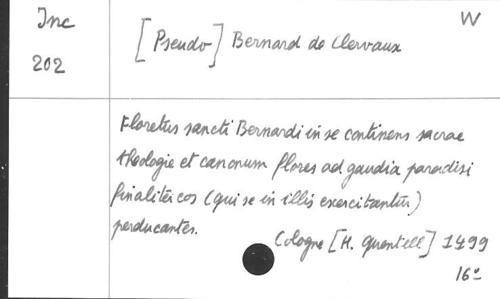 Inc
202
W
[Pseudo] Bernard de Clervaux
Floretus sancti Bernardi in se continens sacrae
theologie et canonum flores ad gaudia paradisi
finaliter eos (qui se in illis exercitantur)
perducantes.
Cologne [H. Quentell] 1499
16°